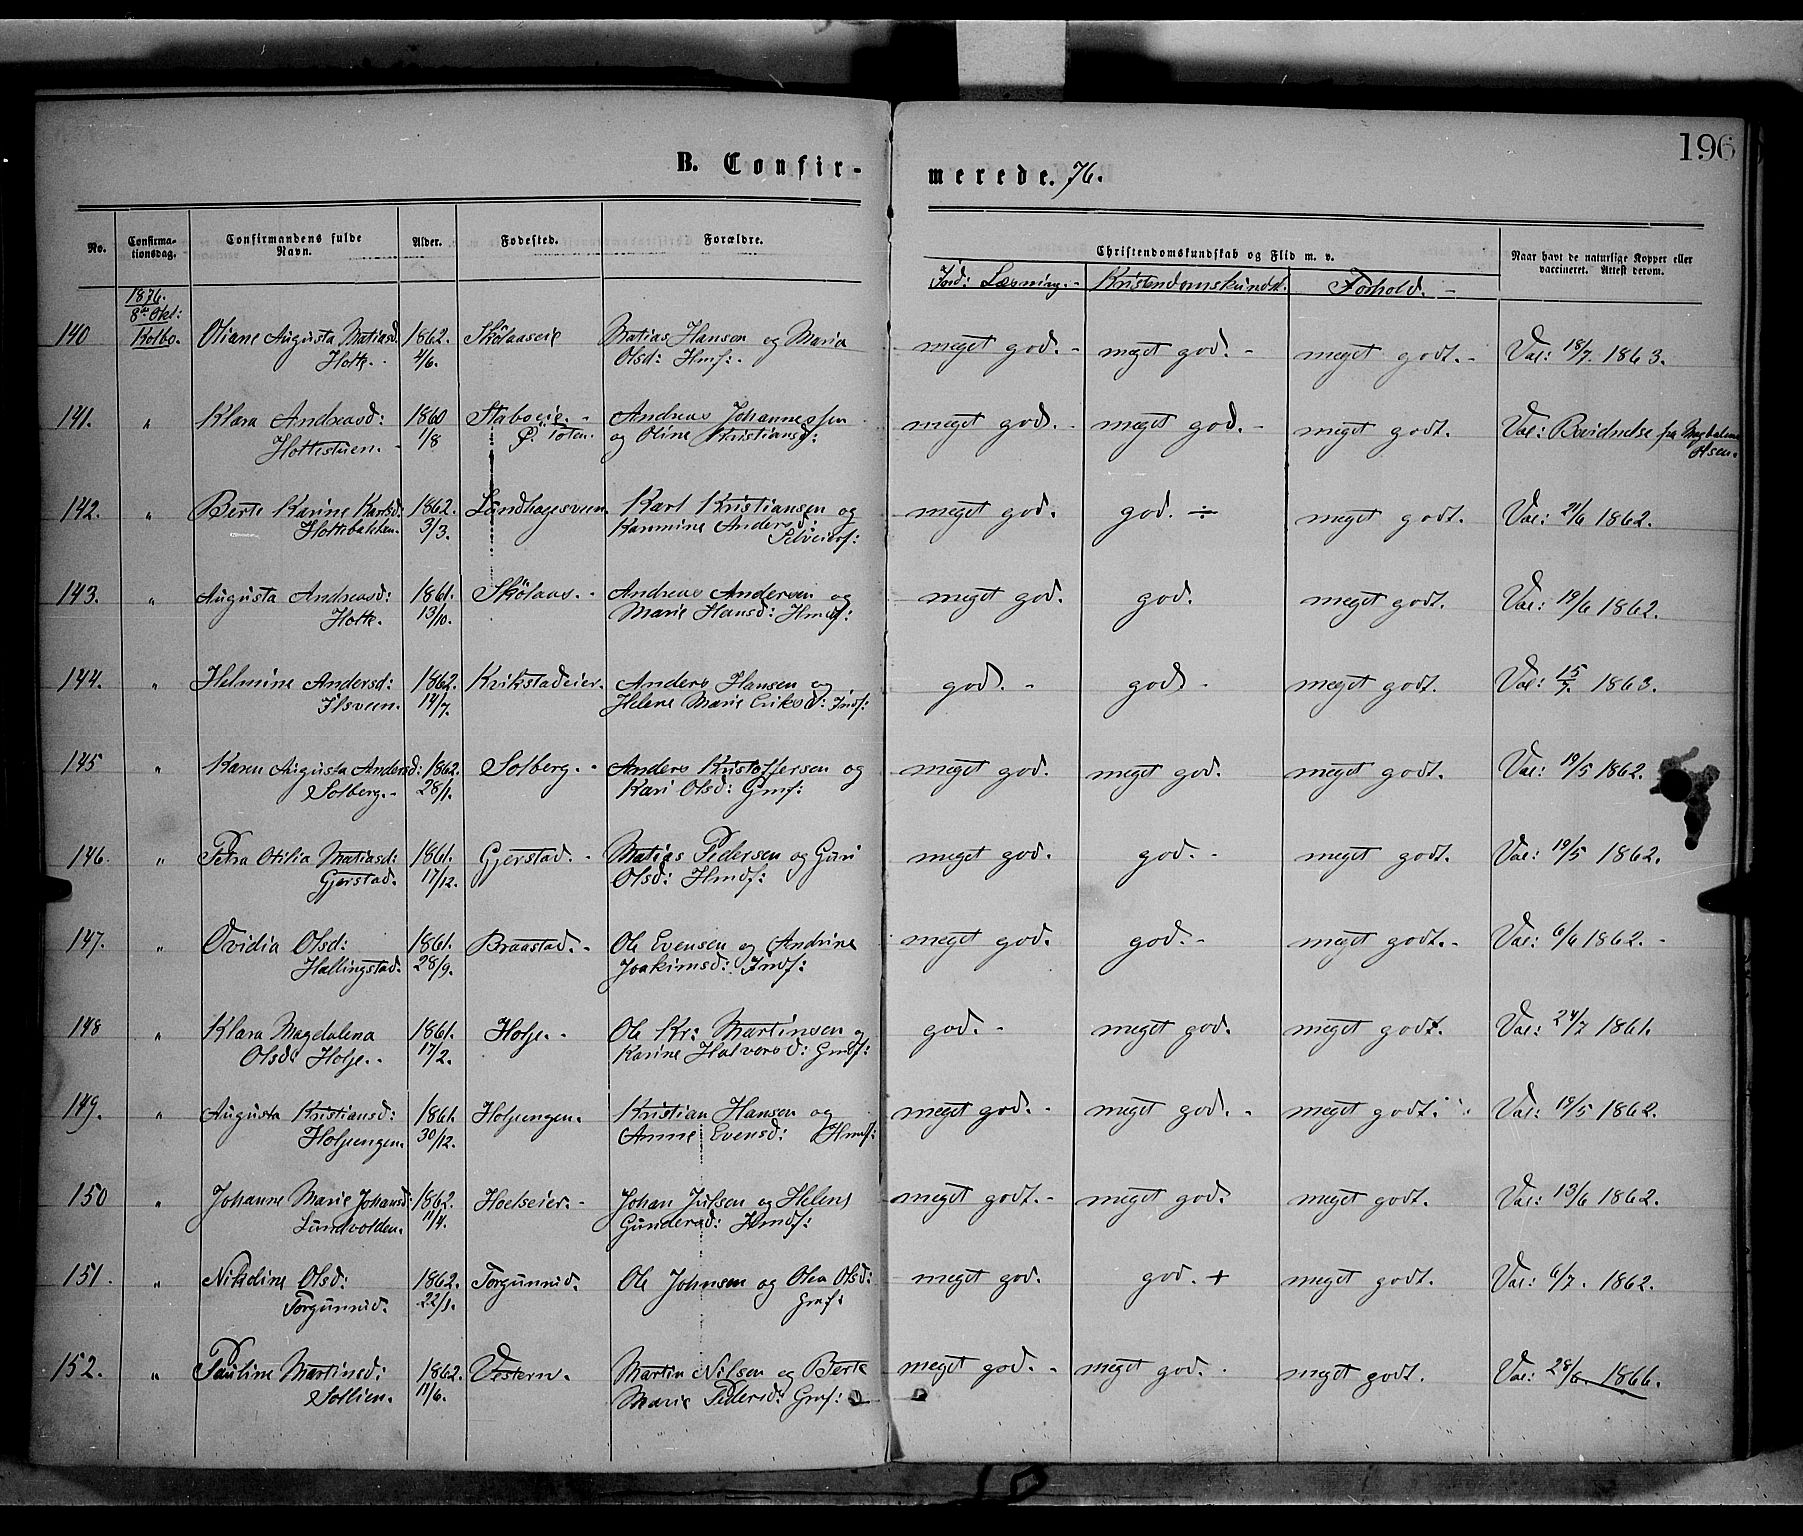 196
B. Confir-
merede. 76.
No. Confirma-tionsdag. Confirmandens fulde Navn. Alder. Fødested. Forældre. Christendomskundskab og Flid m. v. Naar havt de naturlige Kopper eller vaccineret. Attest derom.
Ind: Læsning. - Kristendomskundsk. Forhold. -
1876.
8de Okt:
140 Kolbo. Oliane Augusta Matiasd. 1862. Skölaaseie Matias Hansen og Maria meget god. - meget god. - meget godt. - Vac: 18/7. 1863.
Hotte. - 4/6. Olsd: Hmf: -
141. " Klara Andreasd: 1860 Staboeie. - Andreas Johannessen meget god. - meget god. - meget godt. Vac: Bevidnelse fra Magdalena
Hottestuen. - 1/8 Ø. Toten. og Oline Kristiansd: Olsen.
142. " Berte Karine Karlsd. 1862. Sandhagesveen. Karl Kristiansen og meget god. god. ÷ meget godt. Vac: 21/6 1862.
Hottebakken. 3/3. Karnmine Andersd: Selveierf:
143. " Augusta Andreasd: 1861. Skölaas. - Andreas Andersen og meget god. god. meget godt. Vac: 19/6 1862.
Hotte. 13/10. Marie Hansd: Hmdf:
144. " Helmine Andersd: 1862. Krikstadeier. Anders Hansen og god. - god - meget godt. Vac: 15/7. 1863.
Ilsveen. 14/7. Helene Marie Eriksd: Indf:
145 " Karen Augusta Andersd: 1862. Solberg. - Anders Kristoffersen og meget god. meget god. meget godt. Vac: 19/5 1862.
Solberg. - 28/1. Kari Olsd: Gmf:
146. " Petra Otilia Matiasd: 1861. Gjerstad. - Matias Pedersen og Guri meget god. god. - meget godt. Vac: 19/5 1862.
Gjerstad. 17/12. Olsd: Hmdf:
147. " Ovidia Olsd: 1861. Braastad. - Ole Evensen og Andrine meget god. god. - meget godt. - Vac: 6/6 1862. -
Hallingstad. 28/9. Joakimsd: Indf:
148 " Klara Magdalena 1861. Holje. - Ole Kr: Martinsen og god. - meget god. meget godt. Vac: 24/7 1861.
Olsd: Holje. - 17/2. Karine Halvorsd: Gmdf:
149. " Augusta Kristiansd: 1861. Holjeengen. Kristian Hansen og meget god. - meget god. - meget godt. Vac: 19/5 1862.
Holjeengen. 30/12. Anne Evensd: Hmdf:
150 " Johanne Marie Johansd: 1862. Hoelseier. - Johan Julsen og Helene meget godt. - meget god. meget godt. Vac: 13/6 1862.
Lundvolden. 11/4. Gundersd: Hmdf:
151. " Nikoline Olsd: 1862. Torgunrud. Ole Johnsen og Olea Olsd: meget god. god. + meget godt. Vac: 6/7. 1862.
Torgunrud. 22/1. Gmf:
152. " Pauline Martinsd: 1862. Vestern. Martin Nilsen og Berte meget god. - meget god. meget godt. Vac: 28/6. 1866.
Sollien. 11/6. Marie Pedersd: Gmf: